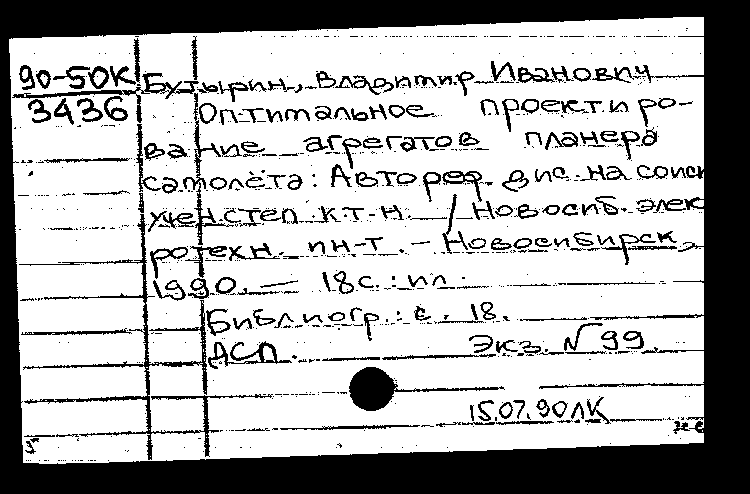 90-50К Бутырин, Владимир Иванович
3436 Оптимальное проектиро-
вание агрегатов планера
самолёта: Автореф. дис. на соиск
учен. степ. к.т.н. / Новосиб. элек
ротехн. ин-т. – Новосибирск,
1990. – 18с.: ил.
Библиогр.: с. 18.
ДСП. Экз. №99.
15.07.90ЛК